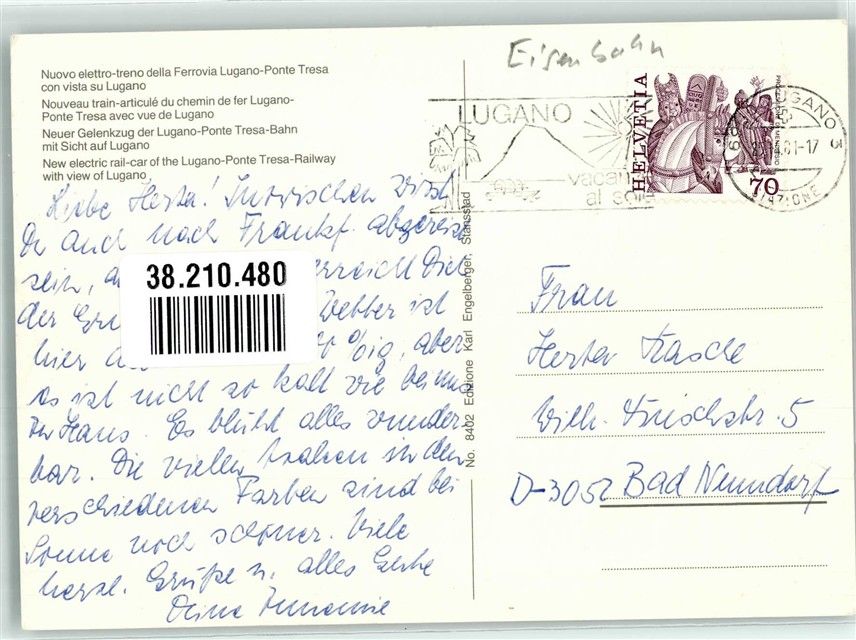 Eisenbahn
Nuovo elettro-treno della Ferrovia Lugano-Ponte Tresa
con vista su Lugano
Nouveau train-articulé du chemin de fer Lugano-
Ponte Tresa avec vue de Lugano
Neuer Gelenkzug der Lugano-Ponte Tresa-Bahn
mit Sicht auf Lugano
New electric rail-car of the Lugano-Ponte Tresa-Railway
with view of Lugano
LUGANO
al sole
HELVETIA
70
LUGANO 3
81-17
Liebe Herta! Inzwischen wirst
Du auch nach Frankf. abgereist
sein,
der
38.210.480
Wetter ist
hier %ig, aber
es ist nicht so kalt wie bei uns
zu Haus. Es blüht alles wunder
bar. Die vielen in den
verschiedenen Farben sind bei
Sonne noch schöner. Viele
herzl. Grüße u. alles Liebe
Deine
No. 8402 Edizione Karl Engelberger, Stansstad
Frau
Herta
Wilh. 5
D-3052 Bad Nenndorf